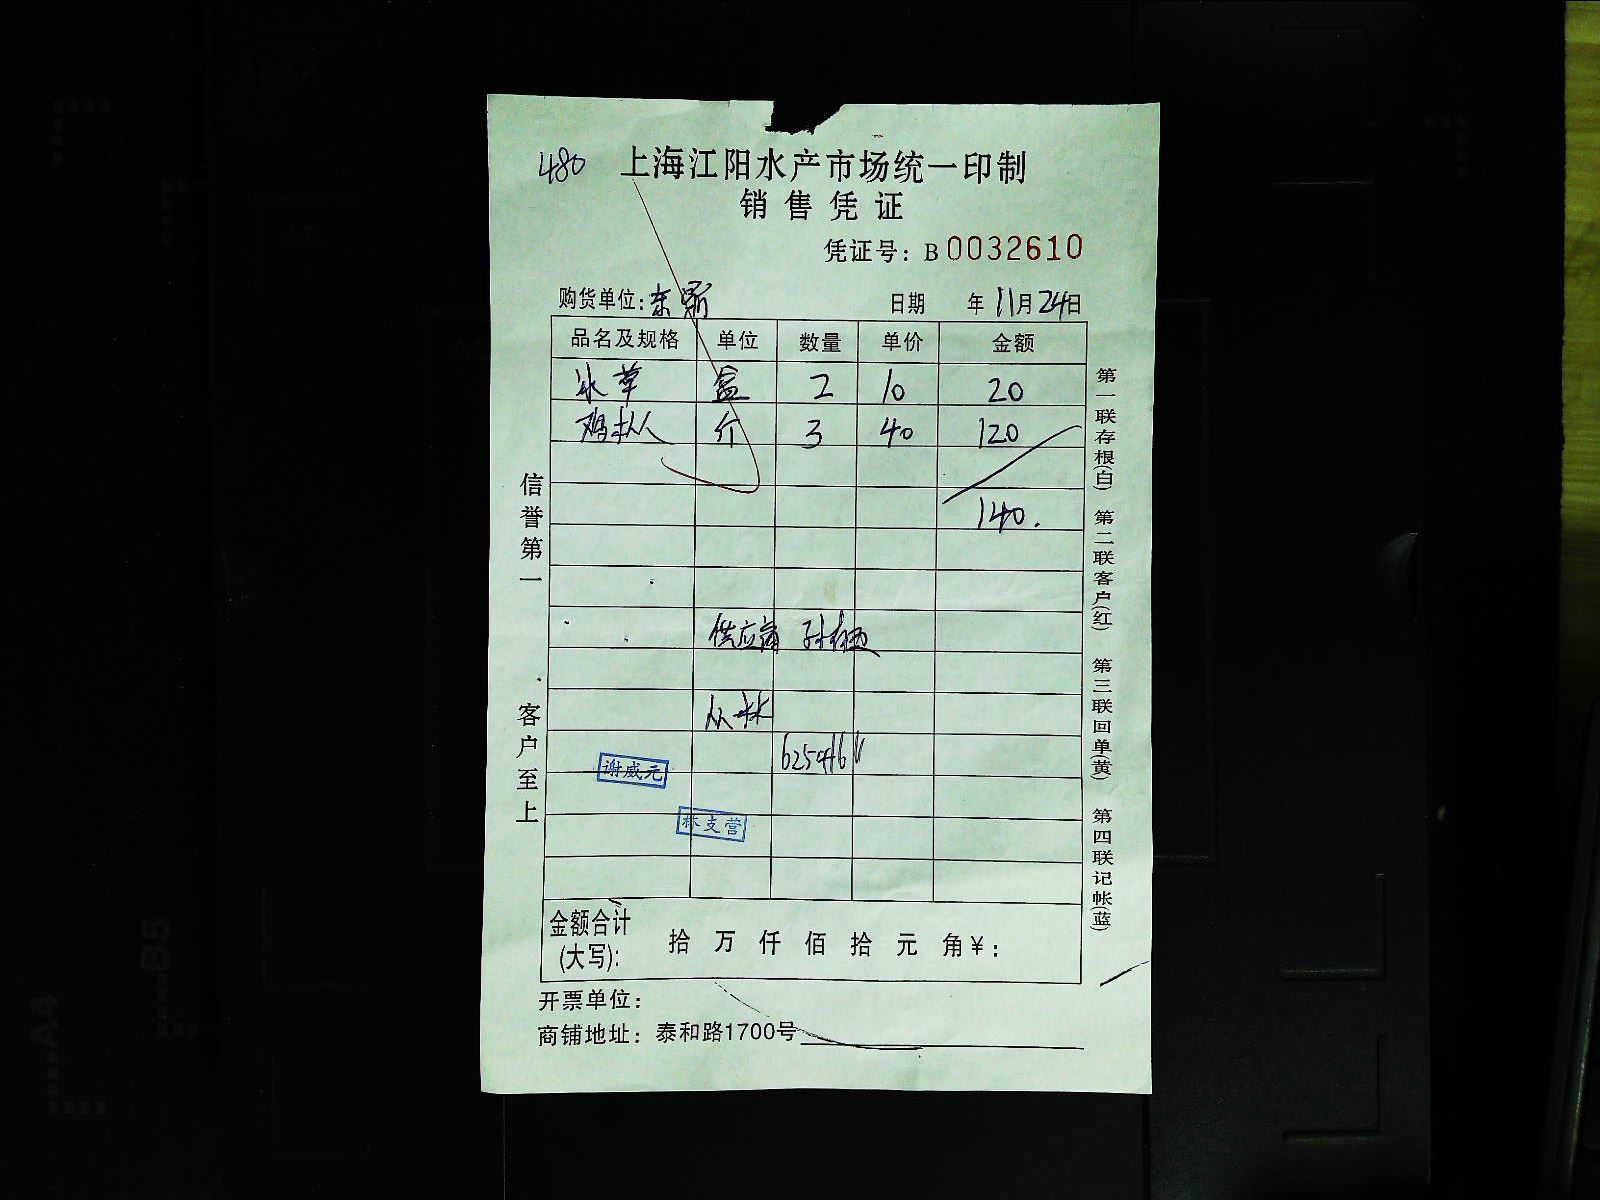 480 上海江阳水产市场统一印制
销售凭证
凭证号：B 0032610
购货单位: 东 日期 年 11月24日
品名及规格 单位 数量 单价 金额
冰草 盒 2 10 20
鸡枞 个 3 40 120
140.
供应商 孙
从林
谢威元
林支营
金额合计
(大写): 拾 万 仟 佰 拾 元 角 ¥:
开票单位:
商铺地址: 泰和路1700号
信誉第一 客户至上
第一联存根(白) 第二联客户(红) 第三联回单(黄) 第四联记帐(蓝)
A4
B5